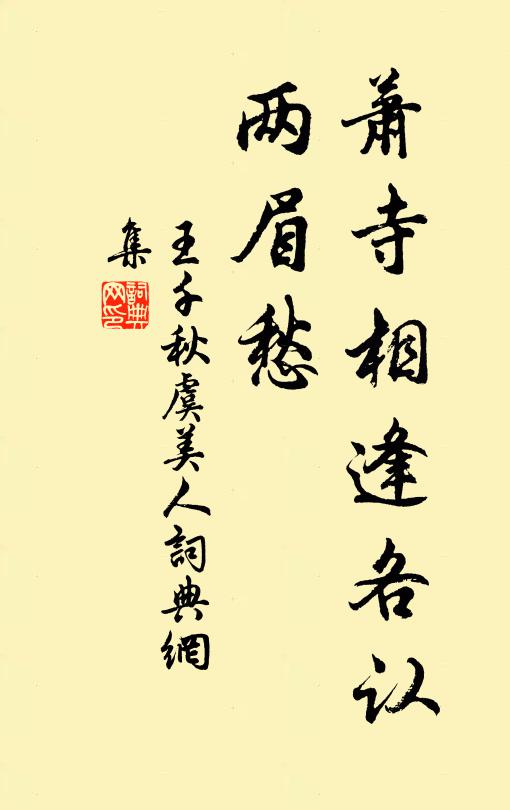 蕭寺相逢各认
两眉愁
王千秋虞美人詞典網
集
詞典
网印